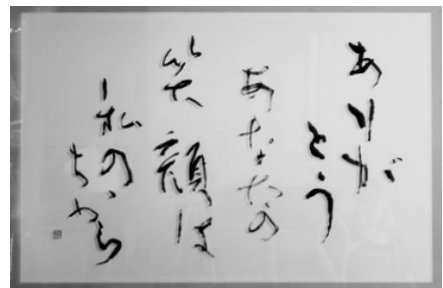 ありが
とう
あなたの
笑顔は
私の
ちから